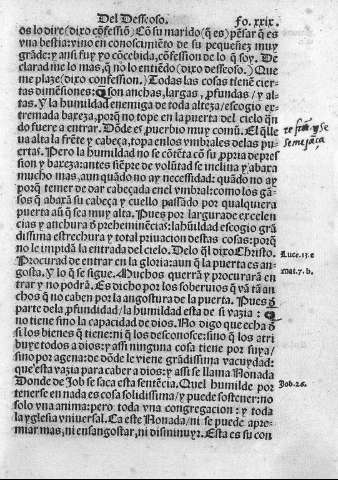 Del Desseoso.
Fo. xxix.
os lo dire (dixo cõfessiõ) Cõ su marido (q̃ es) pẽsar q̃ es
vna bestia: vino en conoscimiẽto de su pequeñez muy
grãde: y ansi fuy yo cõcebida, cõfession de lo q̃ soy. De
clarad me lo mas, q̃ no lo entiẽdo (dixo desseoso.) Que
me plaze (dixo confession.) Todas las cosas tienẽ cier-
tas dimẽsiones: Son anchas, largas, profundas / y al-
tas. Y la humildad enemiga de toda alteza / escogio ex
tremada baxeza, porq̃ no tope en la puerta del cielo quã
do fuere a entrar. Dõde es prouerbio muy comũ. El q̃ lle
ua alta la frẽte y cabeça, topa enlos vmbrales delas pu
ertas. Pero la humildad no se cõtẽta cõ su propria depres
sion y baxeza: antes siẽpre de volũtad se inclina y abaxa
mucho mas, aun quãdo no ay necessidad: quãdo no ay
porq̃ temer de dar cabeçada enel vmbral: como los gã-
sos q̃ abaxã su cabeça y cuello passãdo por qualquiera
puerta aũ q̃ sea muy alta. Pues por largura de excelen
cias y anchura d̃ preheminẽcias: la hũildad escogio grã
dissima estrechura y total priuacion destas cosas: porq̃
no le impidã la entrada del cielo. Delo q̃l dixo Christo.
Procurad de entrar en la gloria: aun q̃ la puerta es an-
gosta. Y lo q̃ se sigue. Muchos querrã y procurarã en
trar y no podrã. Es dicho por los soberuios q̃ vã tã an
chos q̃ no caben por la angostura de la puerta. Pues d̃
parte dela profundidad / la humildad esta de si vazia:
no tiene sino la capacidad de dios. No digo que echa d̃
si los bienes q̃ tiene: ni q̃ los desconosce: sino q̃ los atri
buye todos a dios: y assi ninguna cosa tiene por suya /
sino por agena: de dõde le viene grãdissima vacuydad:
que esta vazia para caber a dios: y assi se llama Nonada
Donde de Job se saca esta sentẽcia. Quel humilde por
tenerse en nada es cosa solidissima / y puede sostener: no
solo vna anima: pero toda vna congregacion: y toda
la yglesia vniuersal. Ca este Nonada / ni se puede apre-
miar mas, ni ensangostar, ni disminuyr. Esta es su con
Luce. 13. e
mat. 7. b.
Job. 26.